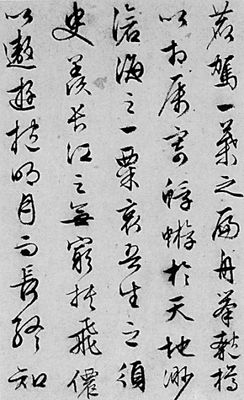 鹿駕一葉之扁舟舉匏樽
以相屬寄蜉蝣於天地渺
滄海之一粟哀吾生之須
臾羨長江之無窮挾飛僊
以遨遊抱明月而長終知